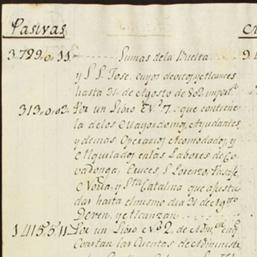 Pasivas
3.799,,0,,11 Sumas dela Buelta
y S.S. Jose, cuyos devitos, y alcances
hasta 31 de Agosto de 802 import.n
313,,0,,02 Por un Libro N.º 7. que contiene
la delos Mayordomos, Ayudantes
y demas Operarios Acomodados, y
Alquilados enlas Labores de Co
vadonga, Cruces S. Lorenzo,
Noria y Sta Catalina que ajusta
das hasta el mismo dia 31 de Agto
Deven, y alcanzan
1.415,,5,,11 Por un Libro N.º 2. de
Constan las Cuentas de Administ